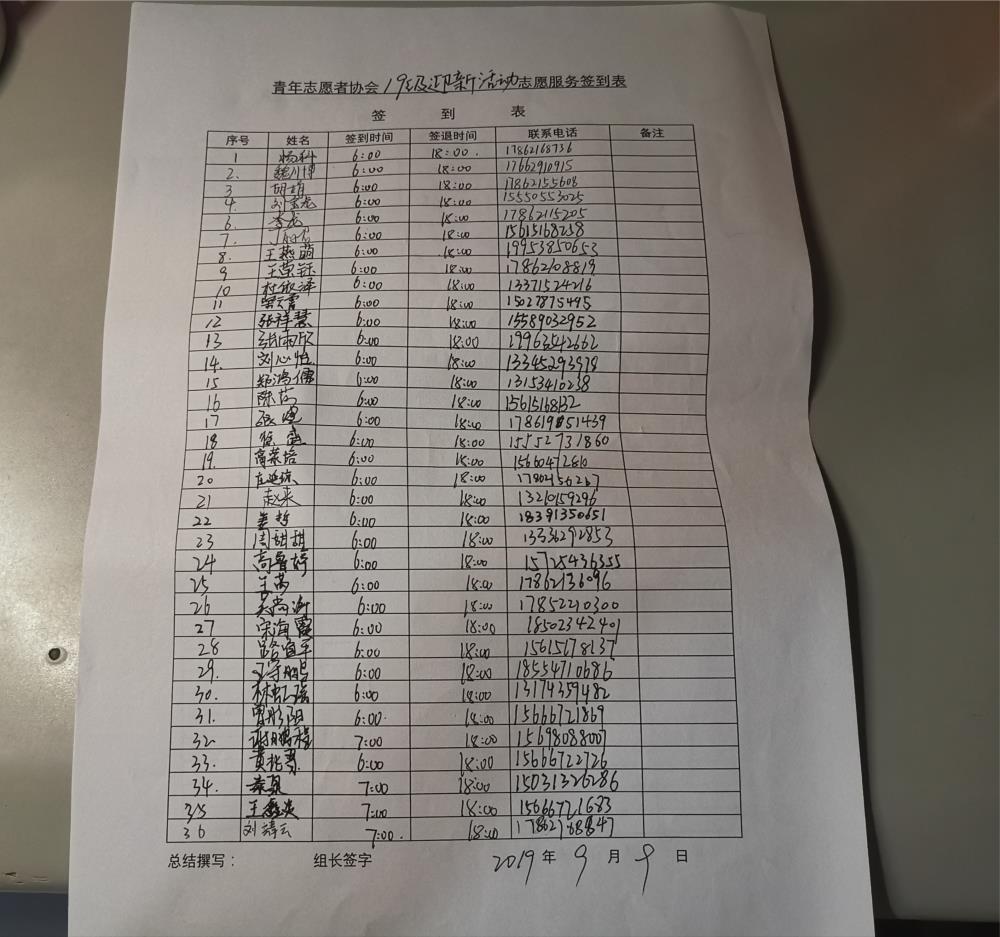 青年志愿者协会19级迎新活动志愿服务签到表
签 到 表
序号 姓名 签到时间 签退时间 联系电话 备注
1 杨科 6:00 18:00. 17862168736
2. 魏川博 6:00 18:00 17662910915
3 胡娟 6:00 18:00 17862155608
4. 刘金龙 6:00 18:00 15550553025
6. 李龙 6:00 18:00 17862115205
7. 6:00 18:00 15615168238
8. 王燕萌 6:00 18:00 19953850653
9 王荣钰 6:00 18:00 17862108819
10 杜俶泽 6:00 18:00 13371524216
11 6:00 18:00 15027875495
12 张祥慧 6:00 18:00 15589032952
13 张雨欣 6:00 18:00 19963442662
14. 刘心怡 6:00 18:00 13345293979
15 郑鸿儒 6:00 18:00 13153410238
16 陈茜 6:00 18:00 15615168132
17 6:00 18:00 17861951439
18 徐盛 6:00 18:00 15552731860
19. 高荣培 6:00 18:00 15660472810
20 6:00 18:00 17802156267
21 赵来 6:00 18:00 13210159296
22 姜哲 6:00 18:00 18391350651
23 周甜甜 6:00 18:00 13336292853
24 高鲁婷 6:00 18:00 15725436355
25 王芮 6:00 18:00 17862136096
26 吴尚渝 6:00 18:00 17852210300
27 宋海霞 6:00 18:00 18502342401
28 路宜平 6:00 18:00 15615178137
29. 6:00 18:00 18554710686
30. 林虹瑶 6:00 18:00 13174359482
31. 曾彤阳 6:00 18:00 15666721869
32 谢鹏程 7:00 18:00 15698088007
33. 6:00 18:00 15666722726
34. 秦夏 7:00 18:00 15031326286
35 王鑫炎 7:00 18:00 15666721683
36 刘靖云 7:00. 18:00 17862168847
总结撰写： 组长签字 2019 年 9 月 9 日